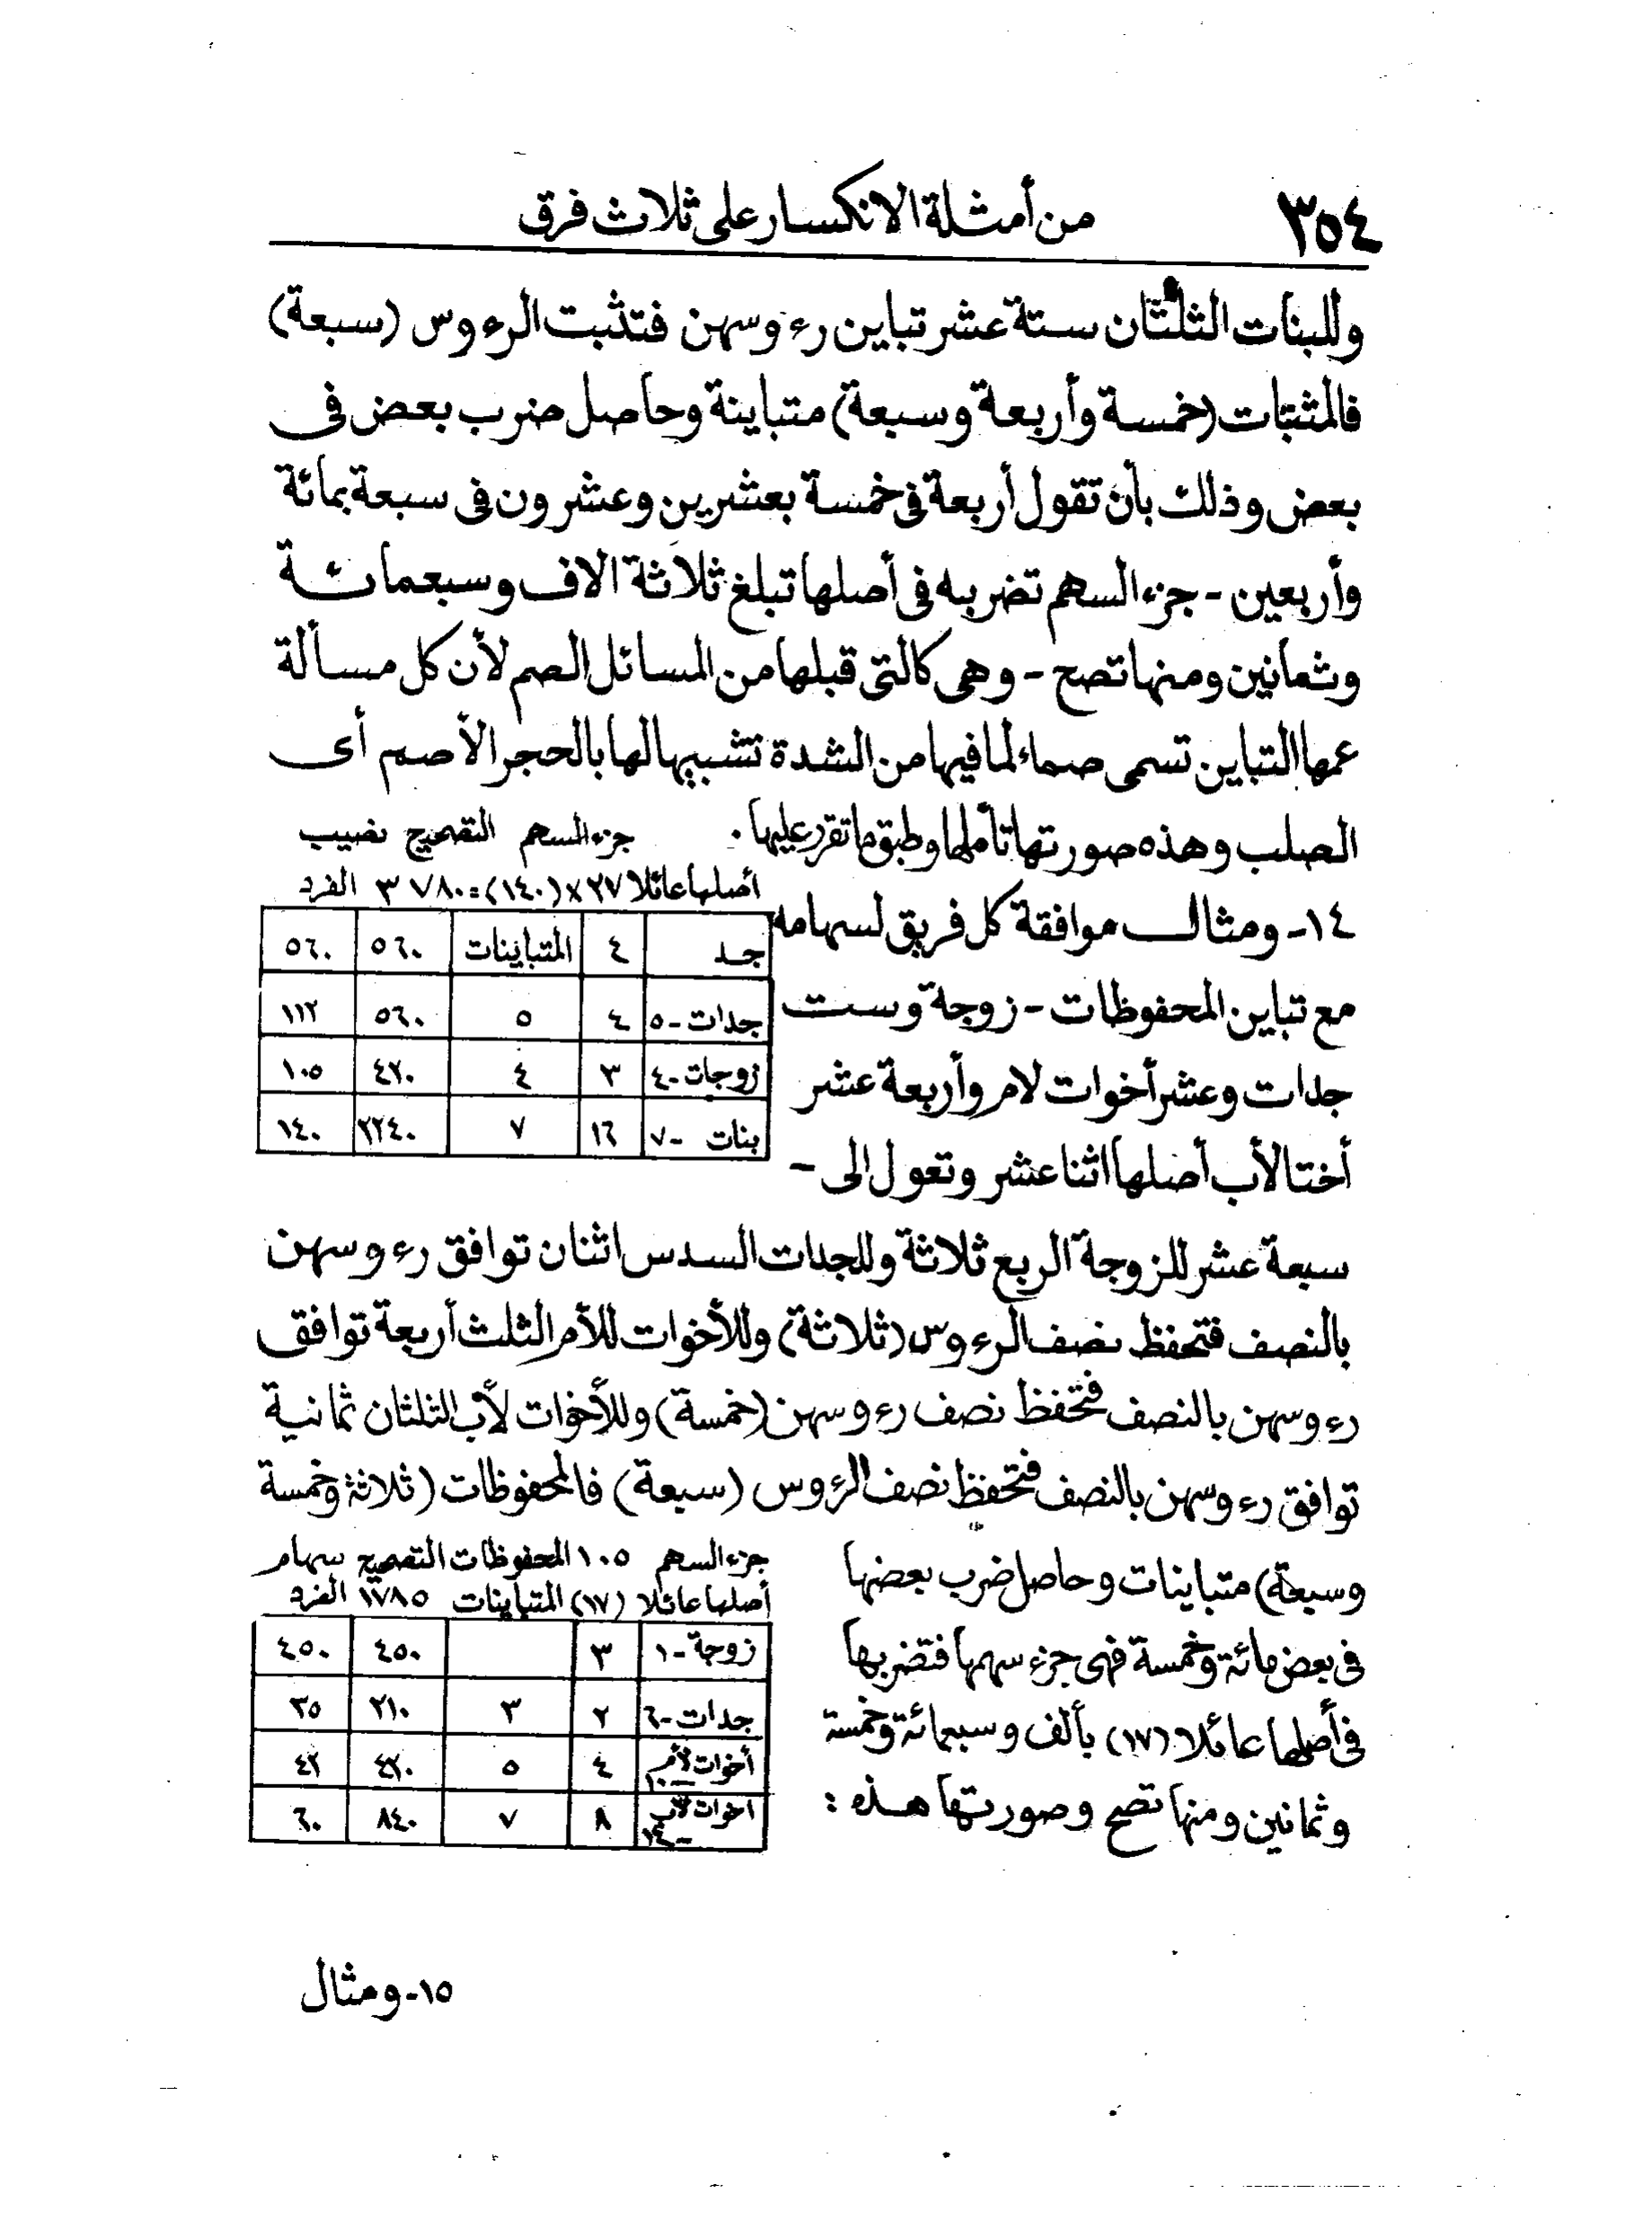 ٣٥٤ من أمثلة الانكسار على ثلاث فرق
وللبنات الثلثان ستة عشر تباين رءوسهن فتثبت الرءوس (سبعة)
فالمثبتات (خمسة وأربعة وسبعة) متباينة وحاصل ضرب بعض فى
بعض وذلك بأن تقول أربعة فى خمسة بعشرين وعشرون فى سبعة بمائة
وأربعين - جزء السهم تضربه فى أصلها تبلغ ثلاثة الاف وسبعمائة
وثمانين ومنها تصح - وهى كالتى قبلها من المسائل الصم لأن كل مسألة
عمها التباين تسمى صماء لما فيها من الشدة تشبيها لها بالحجر الأصم أى
الصلب وهذه صورتها تأملها وطبق ما تقرر عليها .
جزء السهم التصحيح نصيب
أصلها عائلا ٢٧ × (١٤٠) = ٣٧٨٠ الفرد
جد ٤ المتباينات ٥٦٠ ٥٦٠
جدات - ٥ ٤ ٥ ٥٦٠ ١١٢
زوجات - ٤ ٣ ٤ ٤٢٠ ١٠٥
بنات - ٧ ١٦ ٧ ٢٢٤٠ ١٤٠
١٤- ومثال موافقة كل فريق لسهامه
مع تباين المحفوظات - زوجة وست
جدات وعشر أخوات لام وأربعة عشر
أختا لأب أصلها اثنا عشر وتعول الى -
سبعة عشر للزوجة الربع ثلاثة وللجدات السدس اثنان توافق رءوسهن
بالنصف فتحفظ نصف الرءوس (ثلاثة) وللأخوات للأم الثلث أربعة توافق
رءوسهن بالنصف فتحفظ نصف رءوسهن (خمسة) وللأخوات لأب الثلثان ثمانية
توافق رءوسهن بالنصف فتحفظ نصف الرءوس (سبعة) فالمحفوظات (ثلاثة وخمسة
وسبعة) متباينات وحاصل ضرب بعضها
فى بعض مائة وخمسة فهى جزء سهمها فتضربها
فى أصلها عائلا (١٧) بألف وسبعمائة وخمسة
وثمانين ومنها تصح وصورتها هذه :
جزء السهم ١٠٥ المحفوظات التصحيح سهام
أصلها عائلا (١٧) المتباينات ١٧٨٥ الفرد
زوجة - ١ ٣ ٤٥٠ ٤٥٠
جدات - ٦ ٢ ٣ ٢١٠ ٣٥
أخوات لأم - ١٠ ٤ ٥ ٤٢٠ ٤٢
اخوات لأب - ١٤ ٨ ٧ ٨٤٠ ٦٠
١٥- ومثال